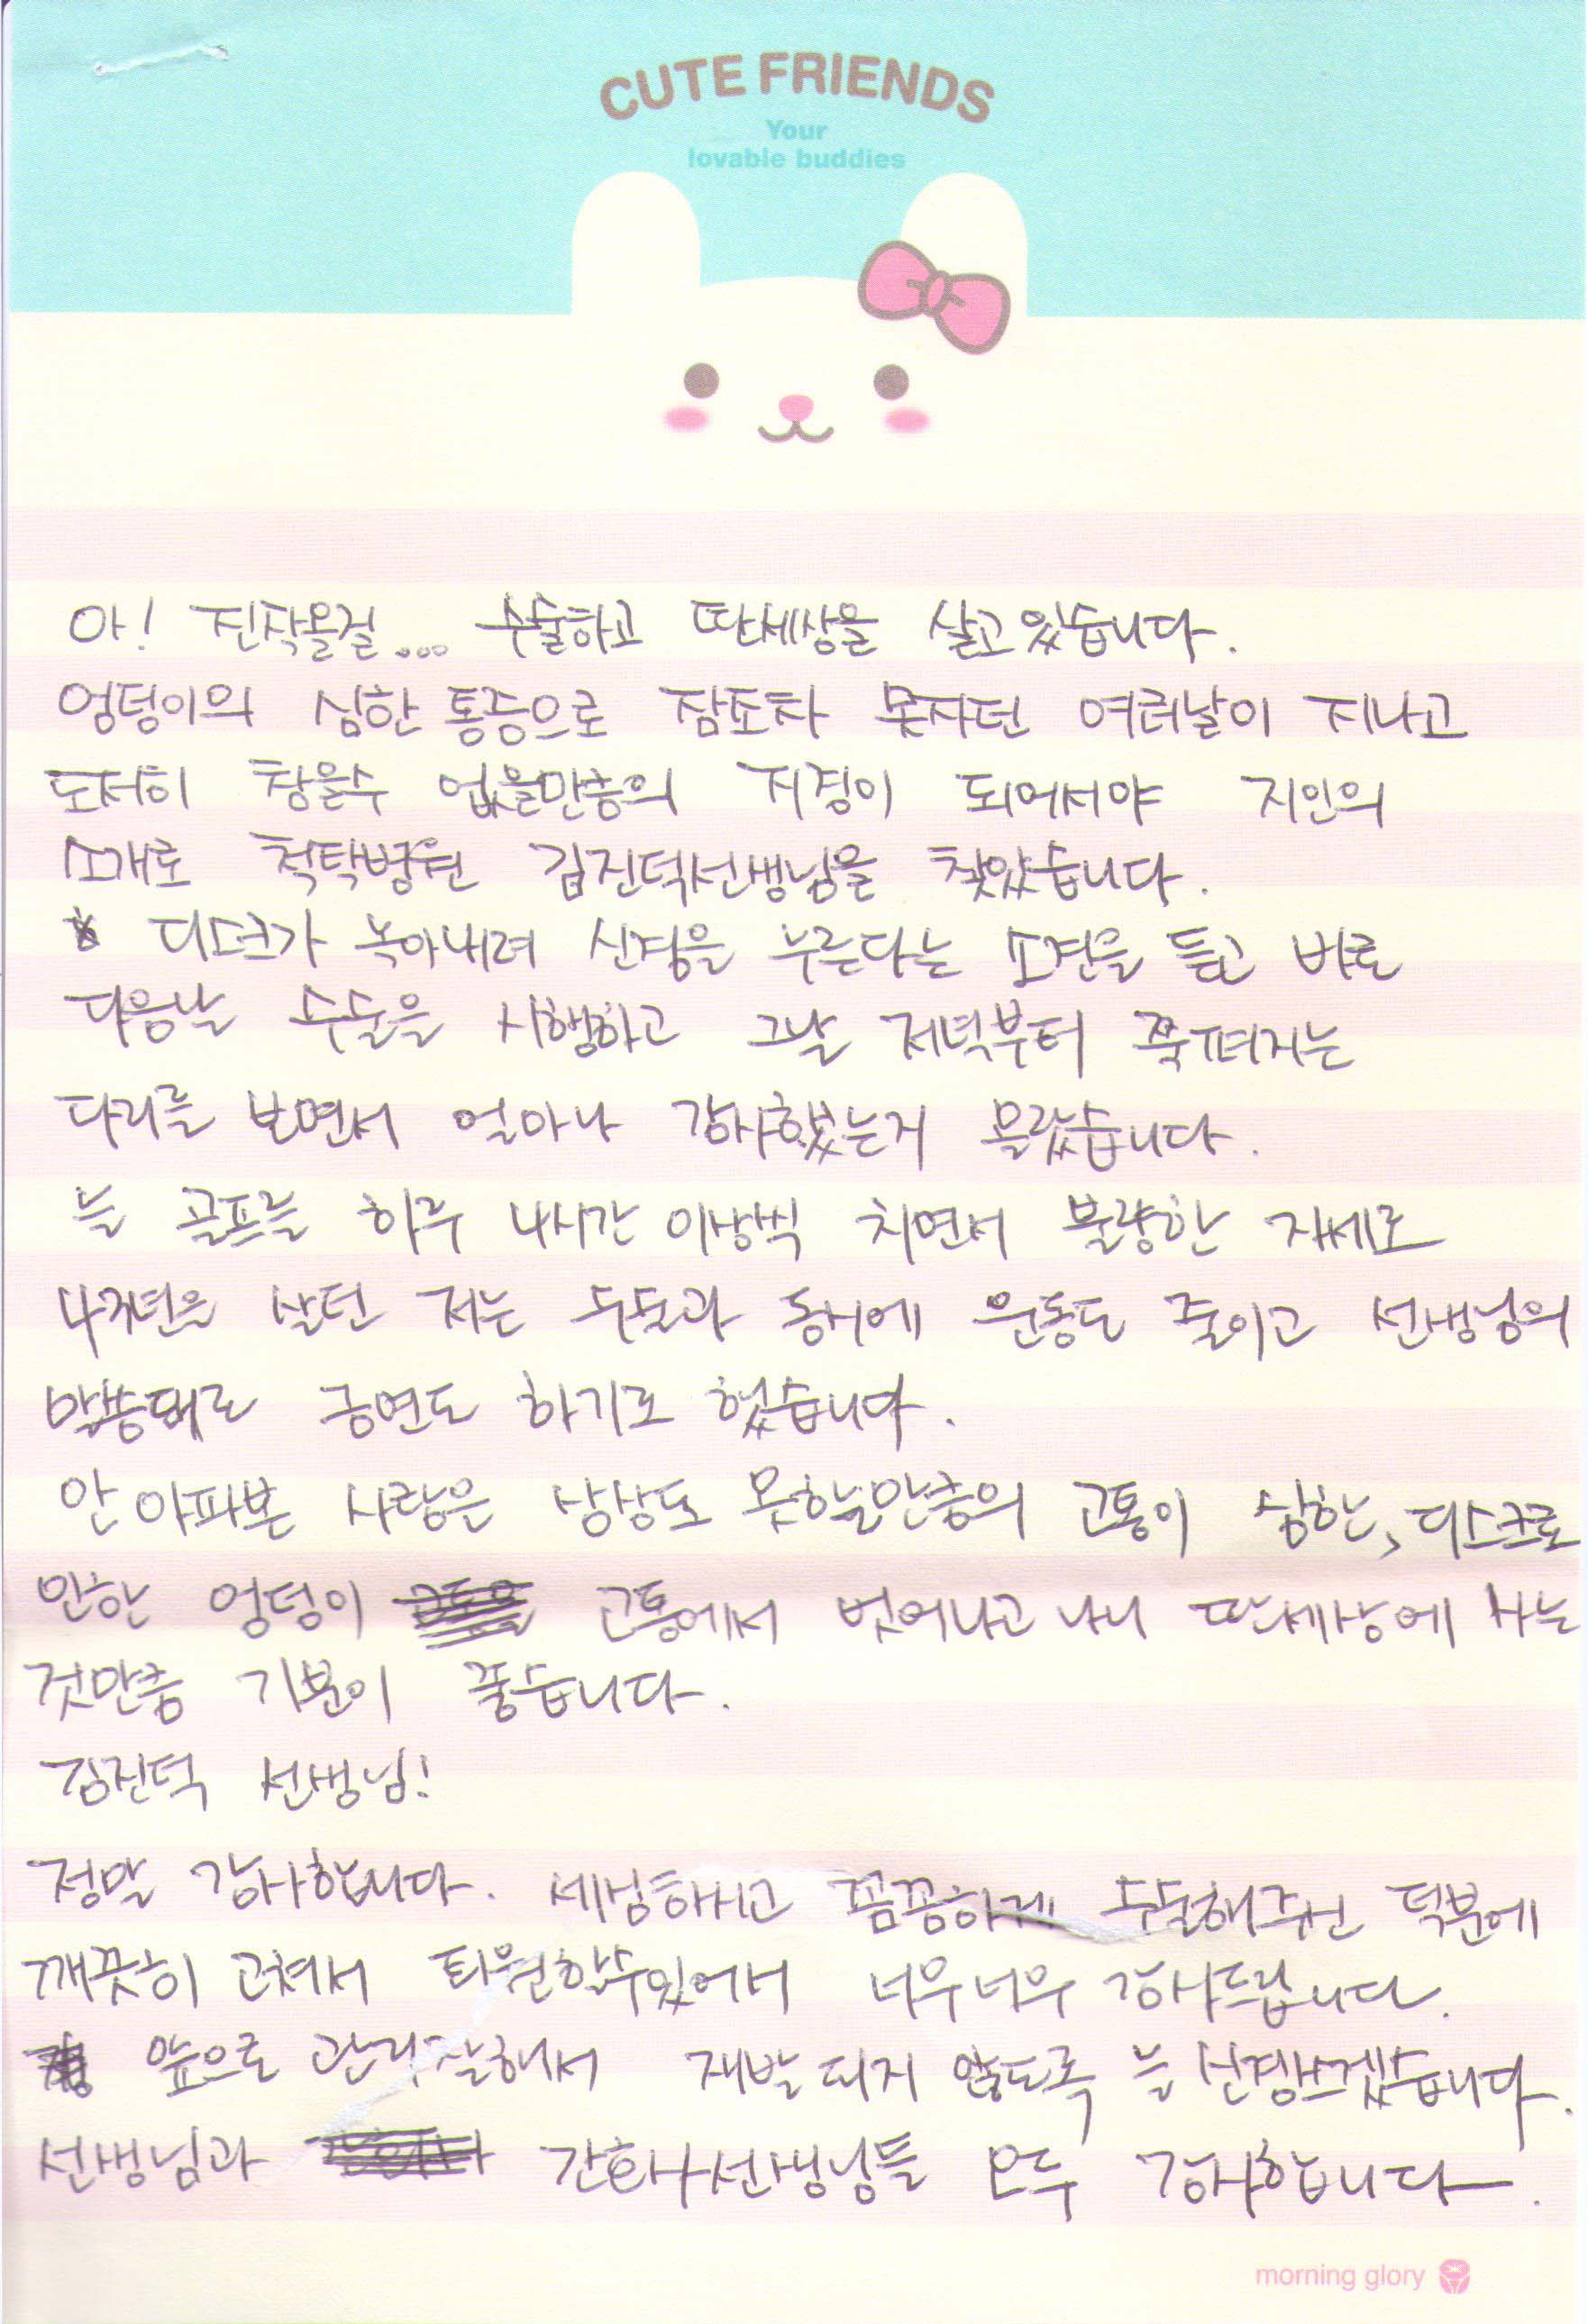 CUTE FRIENDS
Your
lovable buddies
아! 진작올걸... 수술하고 딴세상을 살고있습니다.
엉덩이의 심한 통증으로 잠조차 못자던 여러날이 지나고
도저히 참을수 없을만큼의 지경이 되어서야 지인의
소개로 척탁병원 김진덕선생님을 찾았습니다.
디스크가 녹아내려 신경을 누른다는 소견을 듣고 바로
다음날 수술을 시행하고 그날 저녁부터 쭉펴지는
다리를 보면서 얼마나 감사했는지 몰랐습니다.
늘 골프를 하루 4시간 이상씩 치면서 불량한 자세로
4지년을 살던 저는 수술과 동시에 운동도 줄이고 선생님의
말씀대로 금연도 하기로 했습니다.
안 아파본 사람은 상상도 못하는만큼의 고통이 심한, 디스크로
인한 엉덩이 고통에서 벗어나고 나니 딴세상에 사는
것만큼 기분이 좋습니다.
김진덕 선생님!
정말 감사합니다. 세심하시고 꼼꼼하게 수술해주신 덕분에
깨끗히 고쳐서 퇴원할수있어서 너무너무 감사드립니다.
앞으로 관리잘해서 재발되지 않도록 늘 신경쓰겠습니다.
선생님과 간호사선생님들 모두 감사합니다.
morning glory